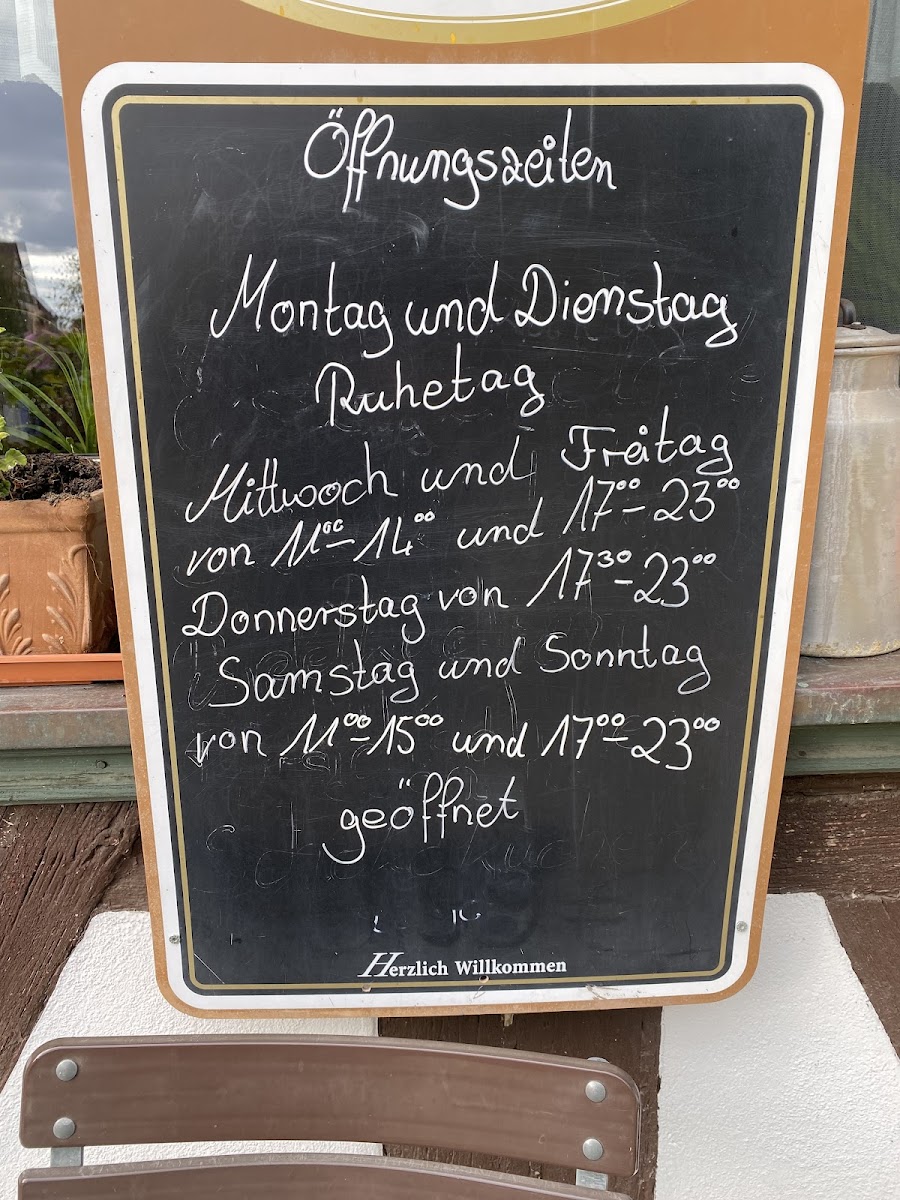 Öffnungszeiten
Montag und Dienstag
Ruhetag
Mittwoch und Freitag
von 11⁰⁰-14⁰⁰ und 17⁰⁰-23⁰⁰
Donnerstag von 17³⁰-23⁰⁰
Samstag und Sonntag
von 11⁰⁰-15⁰⁰ und 17⁰⁰-23⁰⁰
geöffnet
Herzlich Willkommen